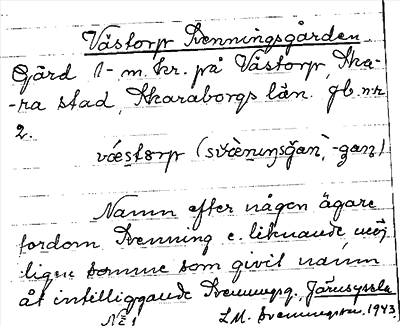 Västorp Svenningsgården
Gård 1-m.kr. på Västorp, Ska-
-ra stad, Skaraborgs län. gb. nr
2.
Namn efter någon ägare
fordom Svenning e. liknande, möj
ligen samme som givit namn
åt intilliggande Svenningsg. Järnsyssla
L.M. Svenningson. 1943